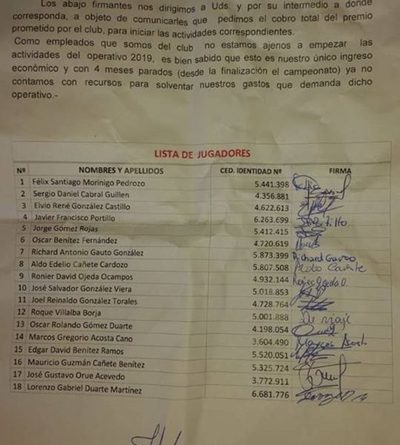 Los abajo firmantes nos dirigimos a Uds. y por su intermedio a donde
corresponda, a objeto de comunicarles que pedimos el cobro total del premio
prometido por el club, para iniciar las actividades correspondientes.
Como empleados que somos del club no estamos ajenos a empezar las
actividades del operativo 2019, es bien sabido que esto es nuestro único ingreso
económico y con 4 meses parados (desde la finalización el campeonato) ya no
contamos con recursos para solventar nuestros gastos que demanda dicho
operativo.-
LISTA DE JUGADORES
Nº NOMBRES Y APELLIDOS CED. IDENTIDAD Nº FIRMA
1 Félix Santiago Morinigo Pedrozo 5.441.398
2 Sergio Daniel Cabral Guillen 4.356.881
3 Elvio René González Castillo 4.622.613
4 Javier Francisco Portillo 6.263.699
5 Jorge Gómez Rojas 5.412.415
6 Oscar Benítez Fernández 4.720.619
7 Richard Antonio Gauto González 5.873.399 Richard Gauto
8 Aldo Edelio Cañete Cardozo 5.807.508 Aldo Cañete
9 Ronier David Ojeda Ocampos 4.932.144
10 José Salvador González Viera 5.018.853
11 Joel Reinaldo González Torales 4.728.764
12 Roque Villalba Borja 5.001.888 De viaje
13 Oscar Rolando Gómez Duarte 4.198.054
14 Marcos Gregorio Acosta Cano 3.604.490
15 Edgar David Benítez Ramos 5.520.051
16 Mauricio Guzmán Cañete Benítez 5.325.724
17 José Gustavo Orue Acevedo 3.772.911
18 Lorenzo Gabriel Duarte Martínez 6.681.776